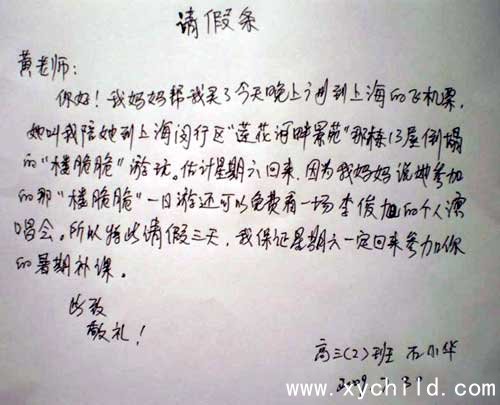 请假条
黄老师：
你好！我妈妈帮我买了今天晚上了到上海的飞机票，
她叫我陪她到上海闵行区“莲花河畔景苑”那栋13层倒塌
的“楼脆脆”游玩。估计星期六回来，因为我妈妈说她参加
的那“楼脆脆”一日游还可以免费看一场李俊旭的个人演
唱会。所以特此请假三天，我保证星期六一定回来参加你
的暑期补课。
此致
敬礼！
高三(2)班 石小华
2009
www.xychild.com